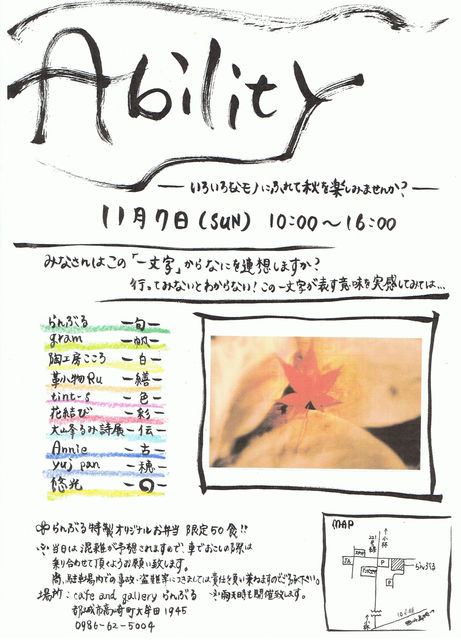 Ability
―いろいろなモノにふれて秋を楽しみませんか?―
11月7日(SUN) 10:00～16:00
みなさんはこの「一文字」からなにを連想しますか?
行ってみないとわからない!この一文字が表す意味を実感してみては…
らんぶる ー旬ー
gram ー帆ー
陶工房こころ ー白ー
革小物Ru ー繕ー
tint-s ー色ー
花結び ー彩ー
大山峯るみ詩展 ー伝ー
Annie ー古ー
yuj pan ー穂ー
悠光
らんぶる特製オリジナルお弁当 限定50食!!
※当日は混雑が予想されますので、車でおこしの際は
乗り合わせて頂くようお願い致します。
尚、駐車場内での事故・盗難等につきましては責任を負い兼ねますのでご了承下さい。
場所:cafe and gallery らんぶる ※雨天時も開催致します。
都城市高崎町大牟田1945
0986-62-5004
MAP
221号線
↑小林
P
P
らんぶる